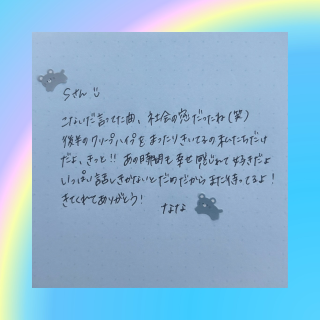 Sさん
こないだ言ってた曲、社会の窓だったね(笑)
後半のクリープハイプをまったりきいてるの私たちだけ
だよ、きっと!! あの時間も幸せ感じれて好きだよ
いっぱい話しきかないとだめだからまた待ってるよ!
きてくれてありがとう!
ななな